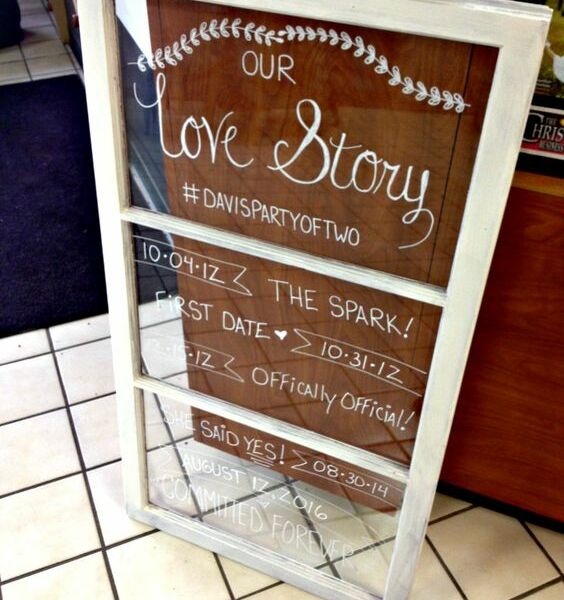 OUR
Love Story
#DAVISPARTYOFTWO
10·04·12 THE SPARK!
FIRST DATE ♥ 10·31·12
OFFICALLY OFFICIAL!
SHE SAID YES! 08·30·14
AUGUST 2016
COMMITTED FOREVER
THE